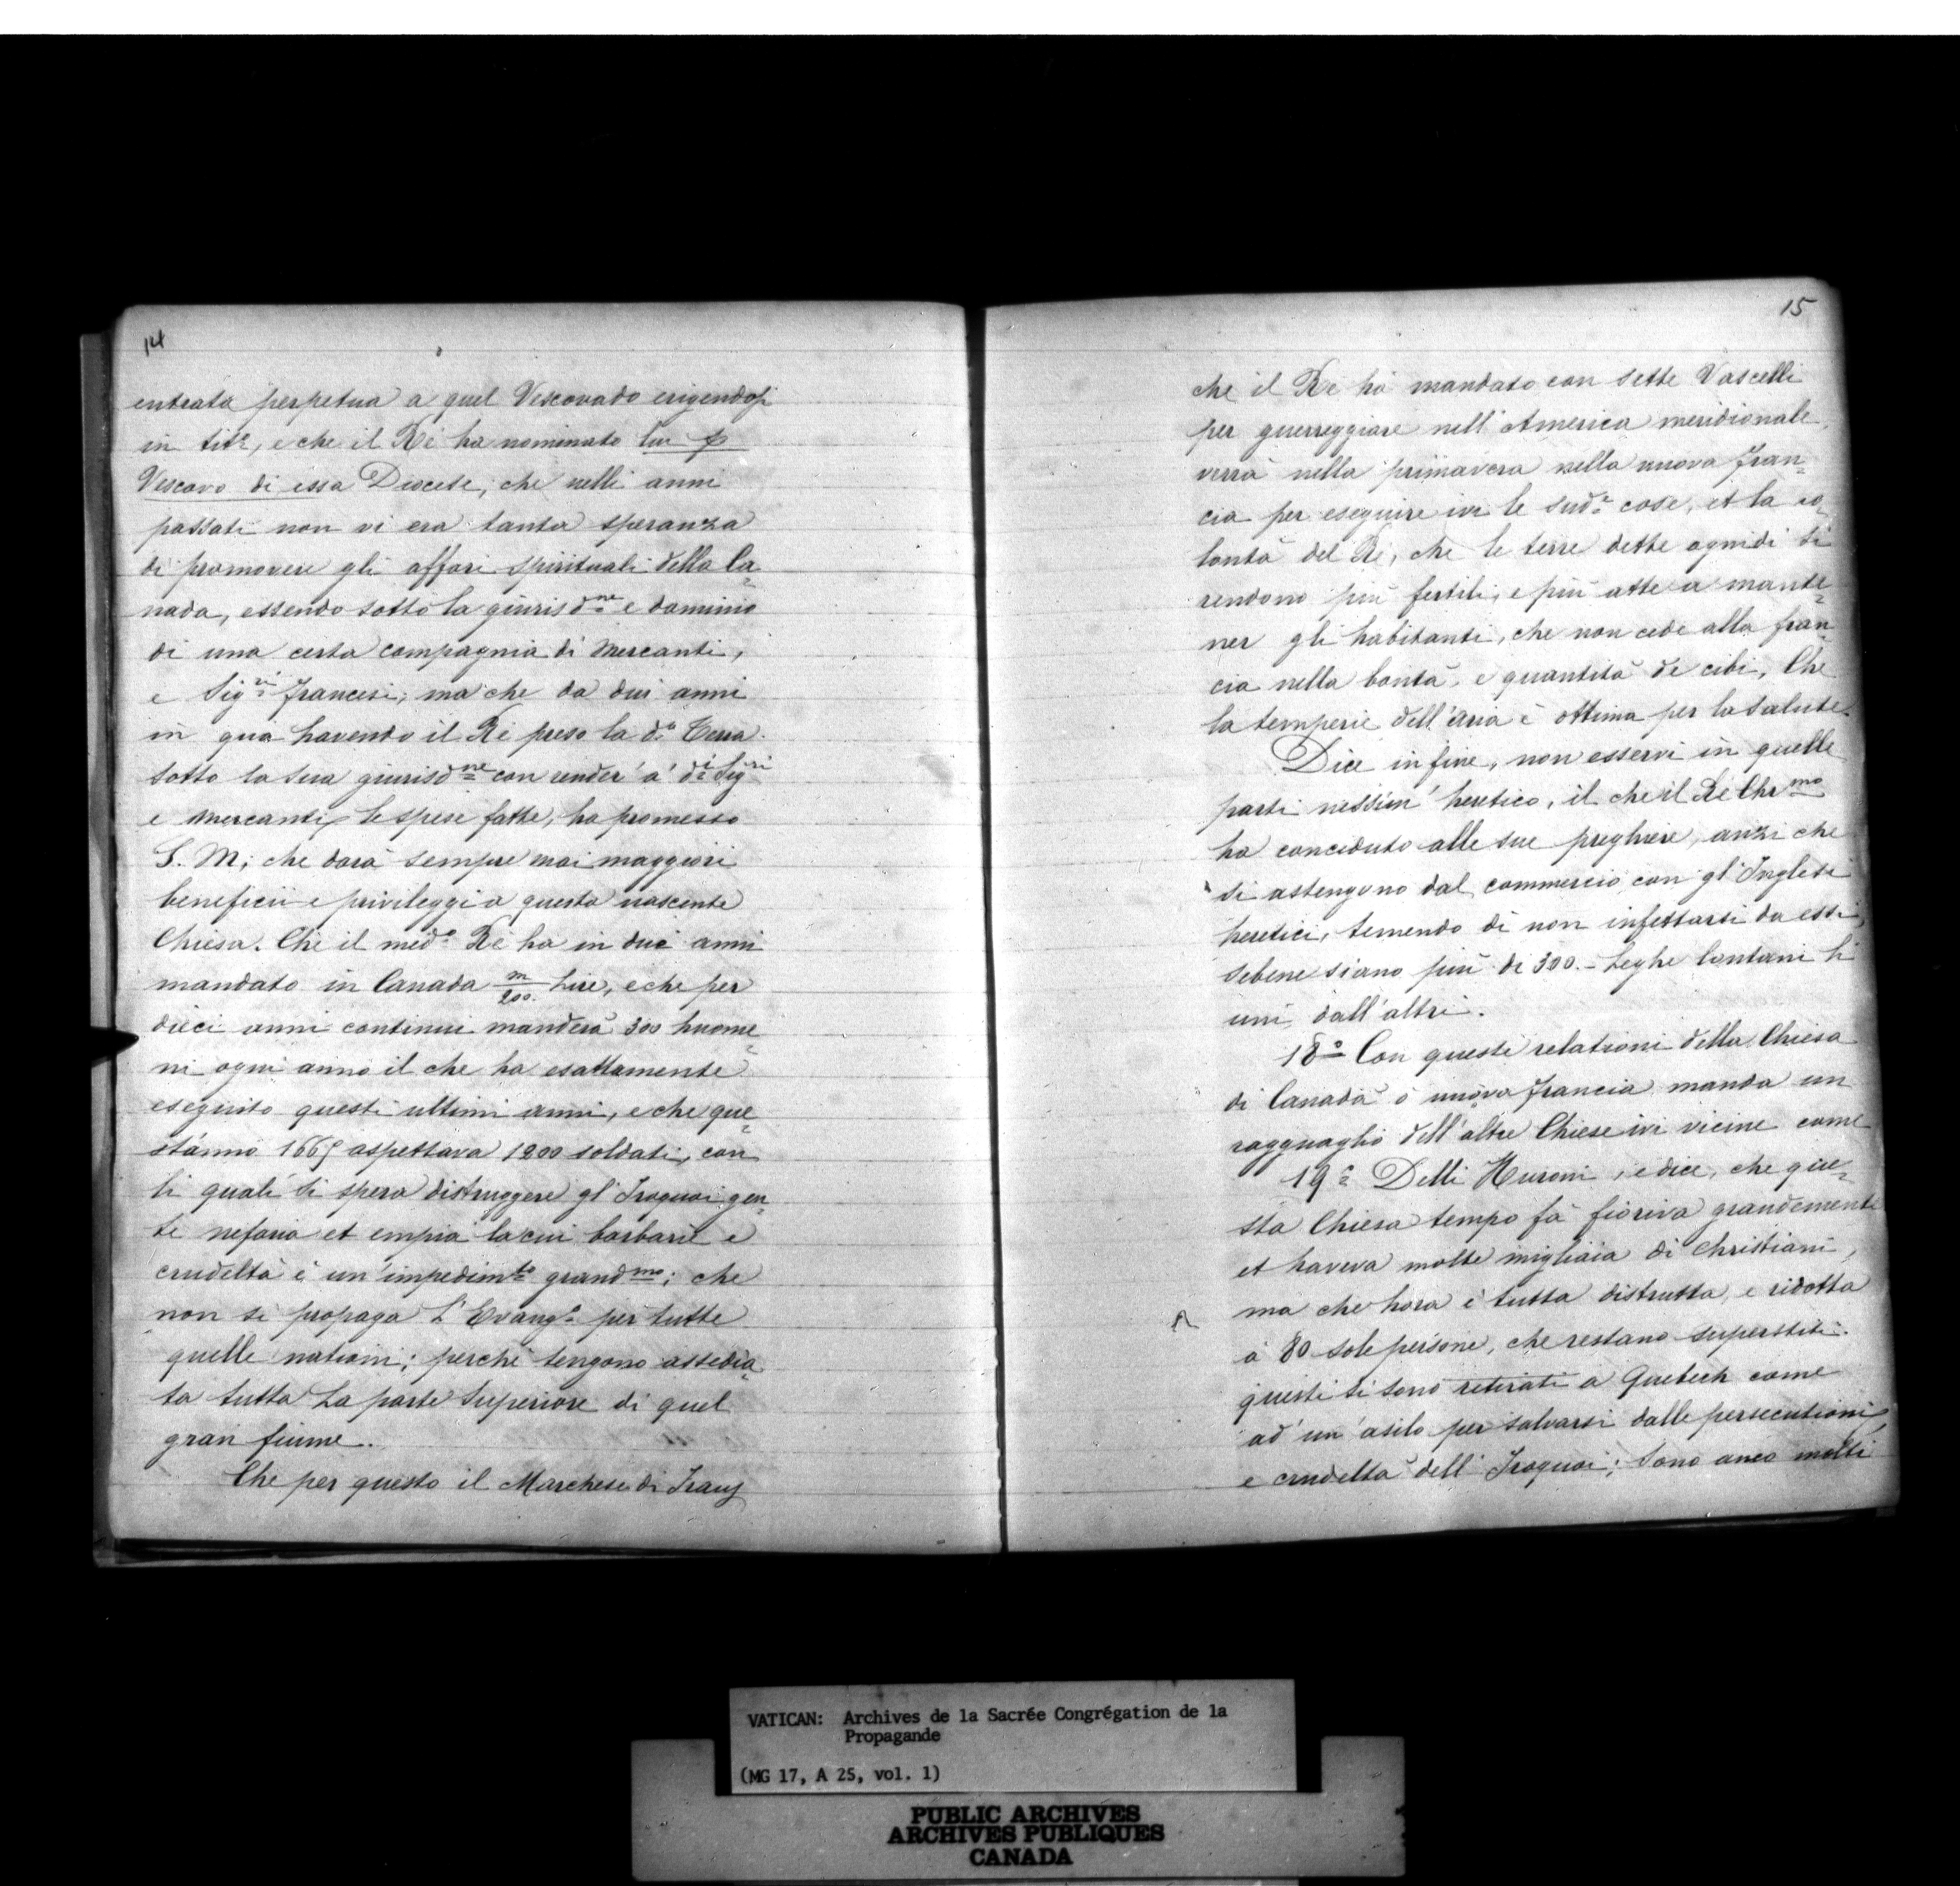 14
entrata perpetua a quel Vescovado erigendosi
in tit.º, e che il Rè ha nominato lui p
Vescovo di essa Diocese, che nelli anni
passati non vi era tanta speranza
di promovere gli affari spirituali della Ca=
nada, essendo sotto la giurisd.ne e dominio
di una certa compagnia di Mercanti,
e Sig.ri francesi; ma che da dui anni
in qua havendo il Rè preso la d.a Terra
sotto la sua giurisd.ne con render' a' d.i Sig.ri
e Mercanti le spese fatte, ha promesso
S. M; che darà sempre mai maggiori
beneficii e privileggi a questa nascente
Chiesa. Che il med.º Rè ha in dui anni
mandato in Canada m/200. Lire, e che per
dieci anni continui manderà 300 huome=
ni ogni anno il che ha esattamente
eseguito questi ultimi anni, e che que=
st'anno 1665 aspettava 1200 soldati, con
li quali si spera distruggere gl'Iroquoi gen=
te nefaria et empia la cui barbarie e
crudeltà è un'impedim.to grand.mo; che
non si propaga l'Evang.º per tutte
quelle nationi; perchè tengono assedia=
ta tutta La parte Superiore di quel
gran fiume.
Che per questo il Marchese di Tracy
15
che il Rè hà mandato con sette Vascelli
per guerreggiare nell'America meridionale,
verrà nella primavera nella nuova fran=
cia per eseguire ivi le sud.e cose, et la vo=
lontà del Rè, che le terre dette ognidì si
rendono più fertili, e più atte a mante=
ner gli habitanti, che non cede alla fran=
cia nella bontà, e quantità de cibi, Che
la temperie dell'aria è ottima per la salute.
Dice in fine, non esservi in quelle
parti nessun' heretico, il che il Rè Chr.mo
ha conceduto alle sue preghiere, anzi che
si astengono dal commercio con gl'Inglesi
heretici, temendo di non infettarsi da essi,
sebene siano più di 300.- Leghe lontani li
uni dall'altri.
18º Con queste relationi della Chiesa
di Canadà ò nuova francia manda un
ragguaglio dell'altre Chiese ivi vicine come
19º Delli Huroni, e dice, che que=
sta Chiesa tempo fà fioriva grandemente
et haveva molte migliaia di Christiani,
ma che hora è tutta distrutta, e ridotta
à 80 sole persone, che restano superstiti.
questi si sono retirati a Quebech come
ad'un'asilo per salvarsi dalle persecutioni,
e crudeltà dell'Iroquoi; Sono anco molti
VATICAN: Archives de la Sacrée Congrégation de la
Propagande
(MG 17, A 25, vol. 1)
PUBLIC ARCHIVES
ARCHIVES PUBLIQUES
CANADA